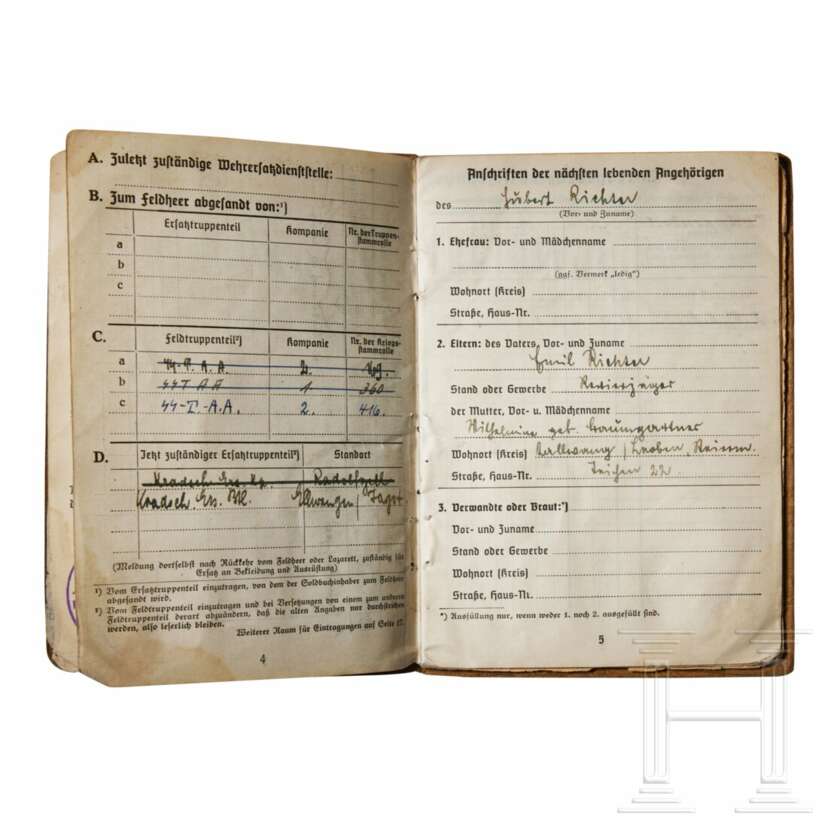 A. Zuletzt zuständige Wehrersatzdienststelle:
B. Zum Feldheer abgesandt von:¹)
Ersatztruppenteil Kompanie Nr. der Truppen-stammrolle
a
b
c
C.
Feldtruppenteil²) Kompanie Nr. der Kriegs-stammrolle
a SS-T.A.A. 2.
b SS T A A 1 360
c SS-T.-A.A. 2. 416.
D. Jetzt zuständiger Ersatztruppenteil²) Standort
Kradsch. Ers. Kp. Radolfzell
Kradsch. Ers. Btl. Ellwangen/Jagst
(Meldung dortselbst nach Rückkehr vom Feldheer oder Lazarett, zuständig für
Ersatz an Bekleidung und Ausrüstung)
¹) Vom Ersatztruppenteil einzutragen, von dem der Soldbuchinhaber zum Feldheer
abgesandt wird.
²) Vom Feldtruppenteil einzutragen und bei Versetzungen von einem zum anderen
Feldtruppenteil derart abzuändern, daß die alten Angaben nur durchstrichen
werden, also leserlich bleiben.
Weiterer Raum für Eintragungen auf Seite 17.
4
Anschriften der nächsten lebenden Angehörigen
des Hubert Richter
(Vor- und Zuname)
1. Ehefrau: Vor- und Mädchenname
(ggf. Vermerk „ledig")
Wohnort (Kreis)
Straße, Haus-Nr.
2. Eltern: des Vaters, Vor- und Zuname
Emil Richter
Stand oder Gewerbe Revierjäger
der Mutter, Vor- u. Mädchenname
Wilhelmine geb. Baumgartner
Wohnort (Kreis) Kallwang / Leoben, Steierm.
Straße, Haus-Nr. 22
3. Verwandte oder Braut:*)
Vor- und Zuname
Stand oder Gewerbe
Wohnort (Kreis)
Straße, Haus-Nr.
*) Ausfüllung nur, wenn weder 1. noch 2. ausgefüllt sind.
5
H